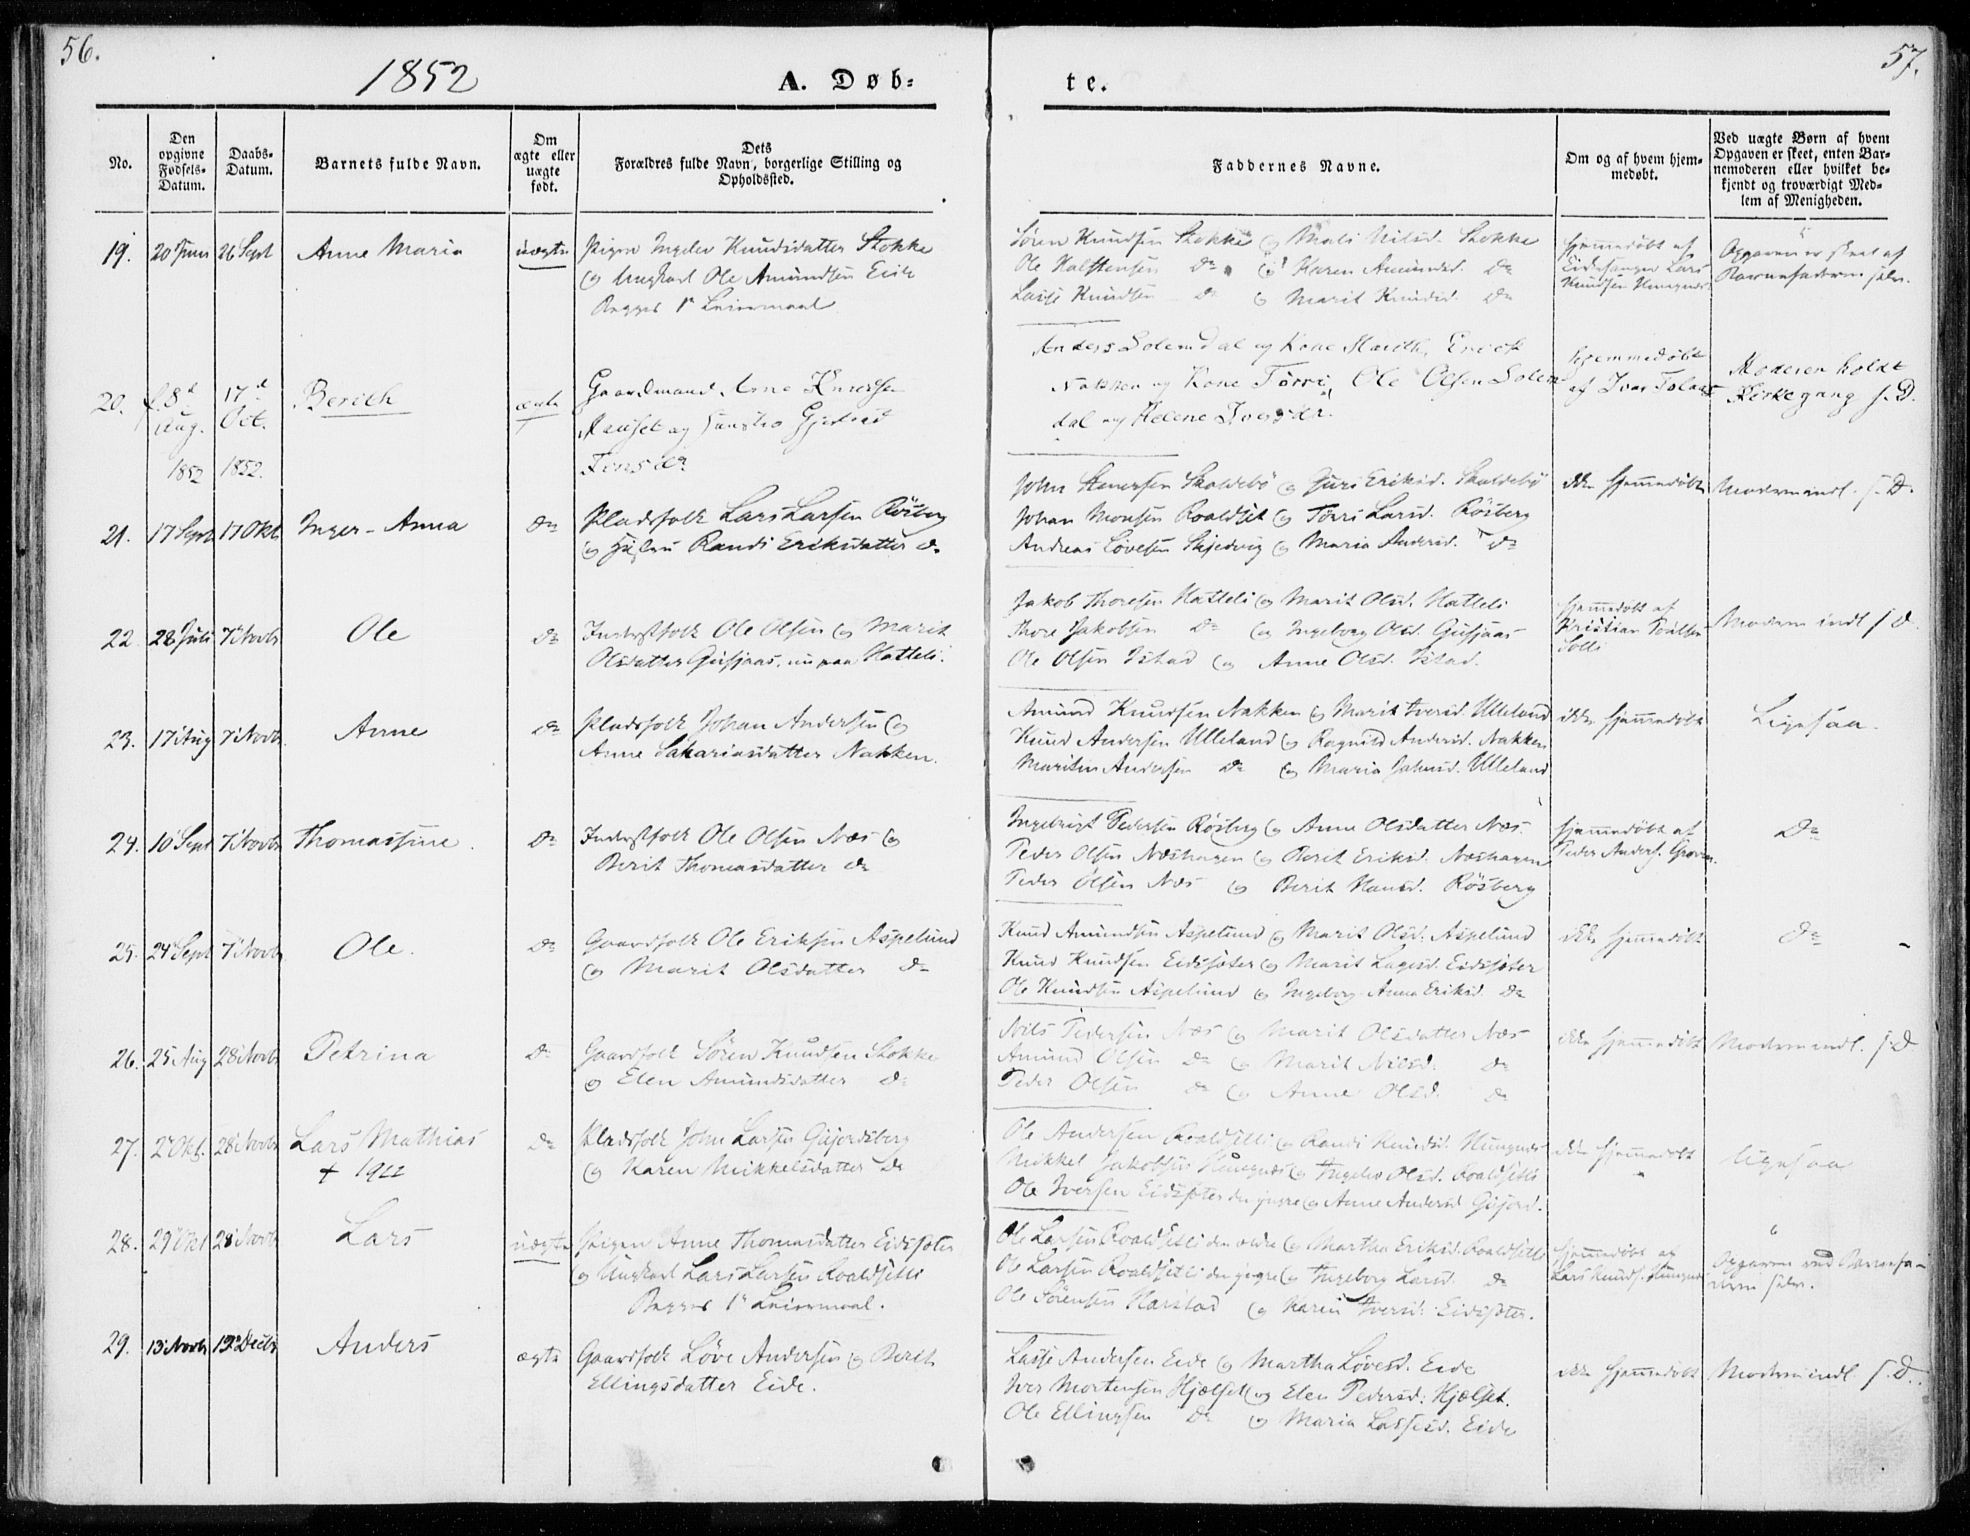 56.
1852
A. Døb-
te.
57.
No.
Den opgivne Fødsels-Datum.
Daabs-Datum.
Barnets fulde Navn.
Om ægte eller uægte født.
Dets
Forældres fulde Navn, borgerlige Stilling og
Opholdssted.
Faddernes Navne.
Om og af hvem hjem-
medøbt.
Ved uægte Børn af hvem
Opgaven er skeet, enten Bar-
nemoderen eller hvilket be-
kjendt og troværdigt Med-
lem af Menigheden.
19. 20 Juni 26 Sept Anne Maria uægte Pigen Ingeler Knudsdatter Stokke
og Ungkarl Ole Amundsen Eide
Begges 1ste Leiermaal
Søren Knudsen Stokke og Mali Nilsd. Stokke
Ole Halstensen Do og Karen Amundsd. Do
Lasse Knudsen Do og Marit Knudsd. Do
hjemmedøbt af
Lars
Knudsen
Opgaven er skeet af
Barnefaderen selv.
20. f. 8d Aug. 1852 17d Oct. 1852. Berith ægte Gaardmand Arne Knudsen
og Hustro
Anders Solemdal og Kone Marith, Erick
Nakken og Kone Torri, Ole Olsen Solem-
dal og Helene
hjemmedøbt
af Ivar
Moderen holdt
Kirkegang s. D.
21. 17 Sept 17 Okt. Inger-Anna Do Pladsfolk Lars Larsen Rösberg
og Hustru Randi Eriksdatter Do
John Stenersen Skaldebö og Guri Eriksd. Skaldebö
Johan Monsen Roaldset og Torri Larsd. Rösberg
Andreas Lövesen Skjedvig og Maria Andersd. Do
ikke hjemmedøbt
Moderen indl. s. D.
22. 28 Juli 7 Novb Ole Do Inderstfolk Ole Olsen og Marit
Olsdatter Gusjaas, nu paa Hatleli.
Jakob Thoresen Hatleli og Marit Olsd. Hatleli
Thore Jakobsen Do og Ingeborg Olsd. Gusjaas
Ole Olsen Istad og Anne Olsd. Istad.
hjemmedøbt af
Kristian
Solli
Moderen indl s D.
23. 17 Aug 7 Novb. Anne Do Pladsfolk Johan Andersen og
Anne Sakariasdatter Nakken.
Amund Knudsen Nakken og Marit Iversd. Ulleland
Knud Andersen Ulleland og Ragnild Andersd. Nakken
Andersen Do og Maria Ulleland
ikke hjemmedøbt
Ligesaa.
24. 10 Sept 7 Novb Thomassine. Do Inderstfolk Ole Olsen Næs og
Berit Thomasdatter Do
Ingebrigt Pedersen Rösberg og Anne Olsdatter Næs
Peder Olsen Næshagen og Berit Eriksd. Næshagen
Peder Olsen Næs og Berit Hansd. Rösberg
hjemmedøbt af
Peder Anders.
Do
25. 24 Sept 7 Novb Ole. Do Gaardfolk Ole Eriksen Aspelund
og Marit Olsdatter Do
Knud Amundsen Aspelund og Marit Olsd. Aspelund
Knud Knudsen Eidssæter og Marit Eidssæter
Ole Knudsen Aspelund og Ingeborg-Anna Eriksd. Do
ikke hjemmedøbt
Do
26. 25 Aug 28 Novb Petrina Do Gaardfolk Søren Knudsen Stokke
og Elen Amundsdatter Do
Nils Pedersen Næs og Marit Olsdatter Næs
Amund Olsen Do og Marit Nilsd. Do
Peder Olsen Do og Anne Olsd. Do
ikke hjemmedøbt
Moderen indl. s. D
27. 2 Okt. 28 Novb Lars Mathias Do Pladsfolk John Larsen Gujordsberg
† 1922
og Karen Mikkelsdatter Do
Ole Andersen Roaldsetli og Randi Knudsd.
Mikkel Jakobsen og Olsd. Roaldsetli
Ole Iversen Eidssæter den yngre og Anne Andersd Gujord.
ikke hjemmedøbt
Ligesaa
28. 29 Okt 28 Novb Lars uægte Pigen Anne Thomasdatter Eidssæter
og Ungkarl Lars Larsen Roaldsetli
Begges 1ste Leiermaal.
Ole Larsen Roaldsetli den ældre og Martha Eriksd. Roaldsetli
Ole Larsen Roaldsetli den yngre og Ingeborg Larsd. Do
Ole Sørensen Harstad og Karen Iversd. Eidssæter.
hjemmedøbt af
Lars Knuds.
Opgaven ved Barnefa-
deren selv.
29. 13 Novb 19 Decbr Anders ægte Gaardfolk Løve Andersen og Berit
Ellingsdatter Eide.
Lasse Andersen Eide og Martha Løvesd. Eide
Iver Mortensen Hjelset og Elen Pedersd. Hjelset.
Ole Ellingsen Do og Maria Lassesd. Eide
ikke hjemmedøbt
Moderen indl. s. D.